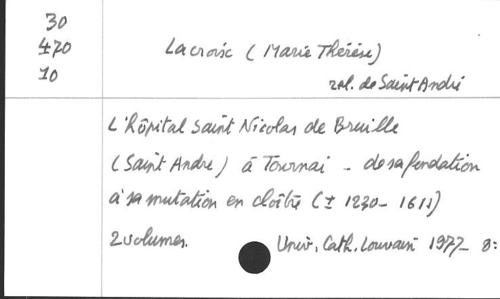 30
470
10
Lacroix (Marie Thérèse)
rel. de Saint André
L'Hôpital Saint Nicolas de Bruille
(Saint André) à Tournai - de sa fondation
à sa mutation en cloître (± 1230 - 1611)
2 volumes.
Univ. Cath. Louvain 1977 - 8: